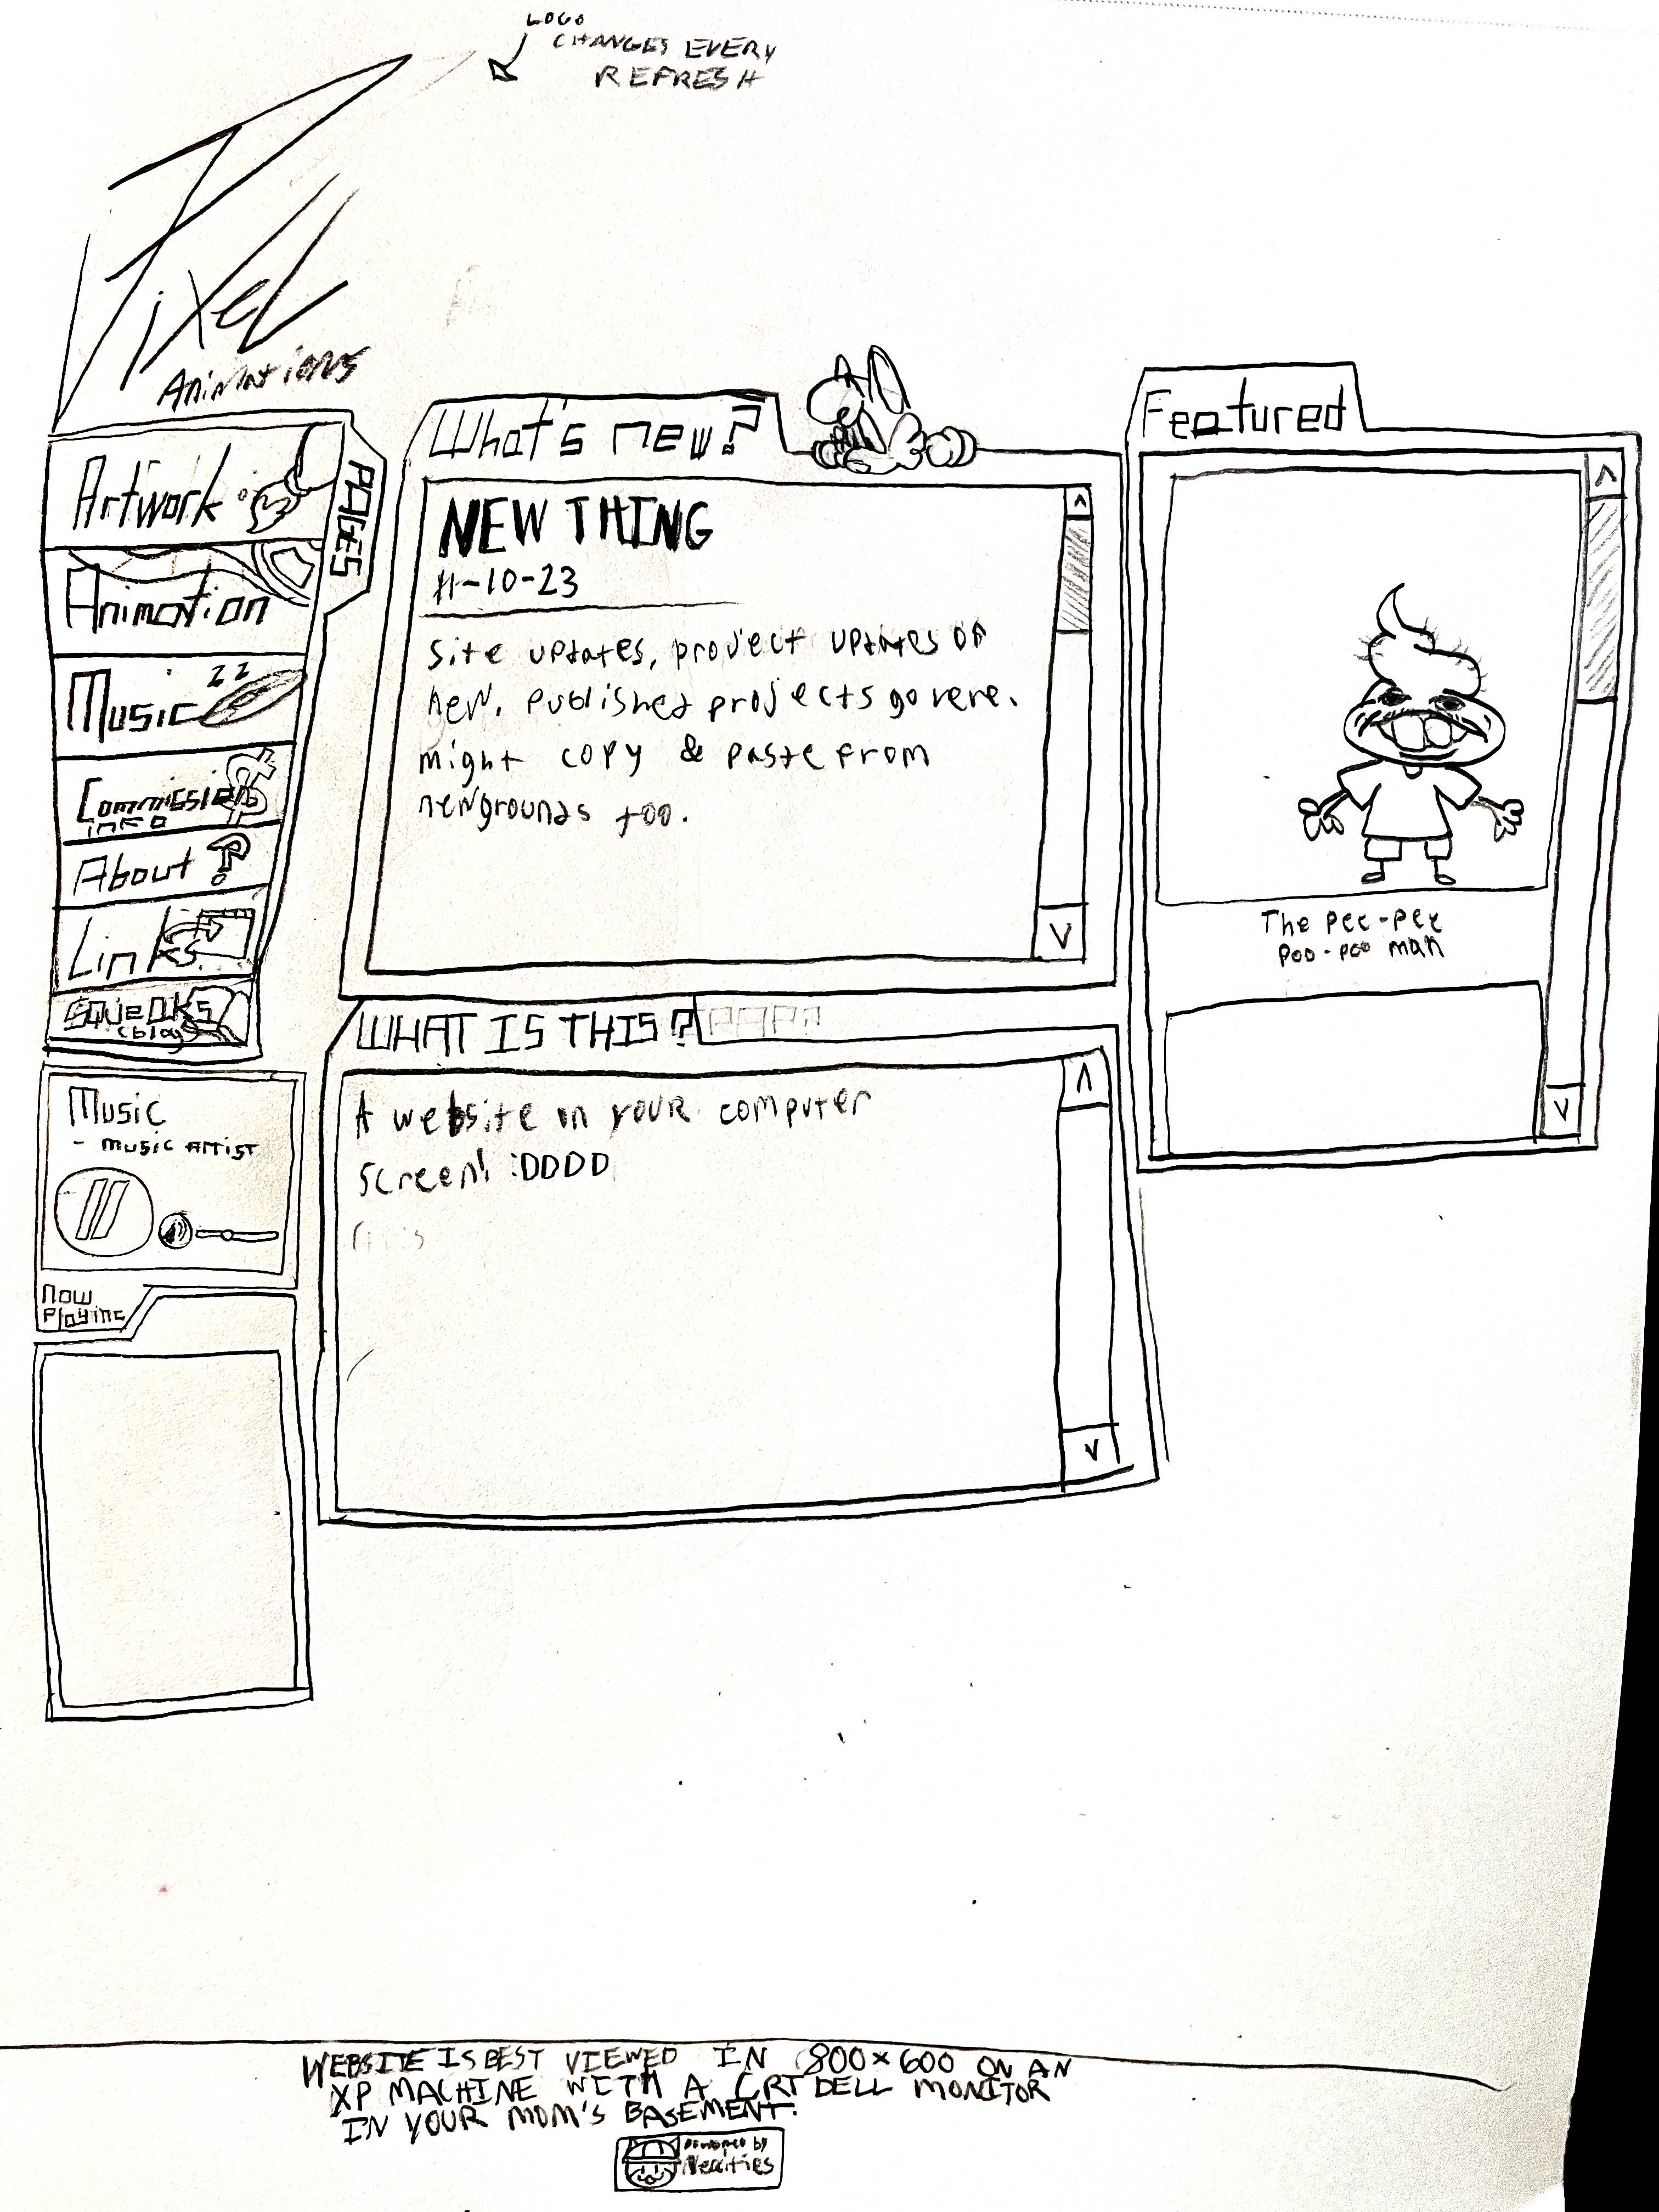 LOGO
CHANGES EVERY
REFRESH
Pixel
Animations
PAGES
Artwork
Animation
Music
Commission
INFO
About ?
Links
Squeaks
(blog)
What's new?
NEW THING
11-10-23
Site updates, project updates or
new. published projects go here.
might copy & paste from
newgrounds too.
Featured
The pee-pee
poo-poo man
WHAT IS THIS?
A website in your computer
screen! :DDDD
Music
- music artist
Now
Playing
WEBSITE IS BEST VIEWED IN 800x600 ON AN
XP MACHINE WITH A CRT DELL MONITOR
IN YOUR MOM'S BASEMENT.
Powered by
Neocities